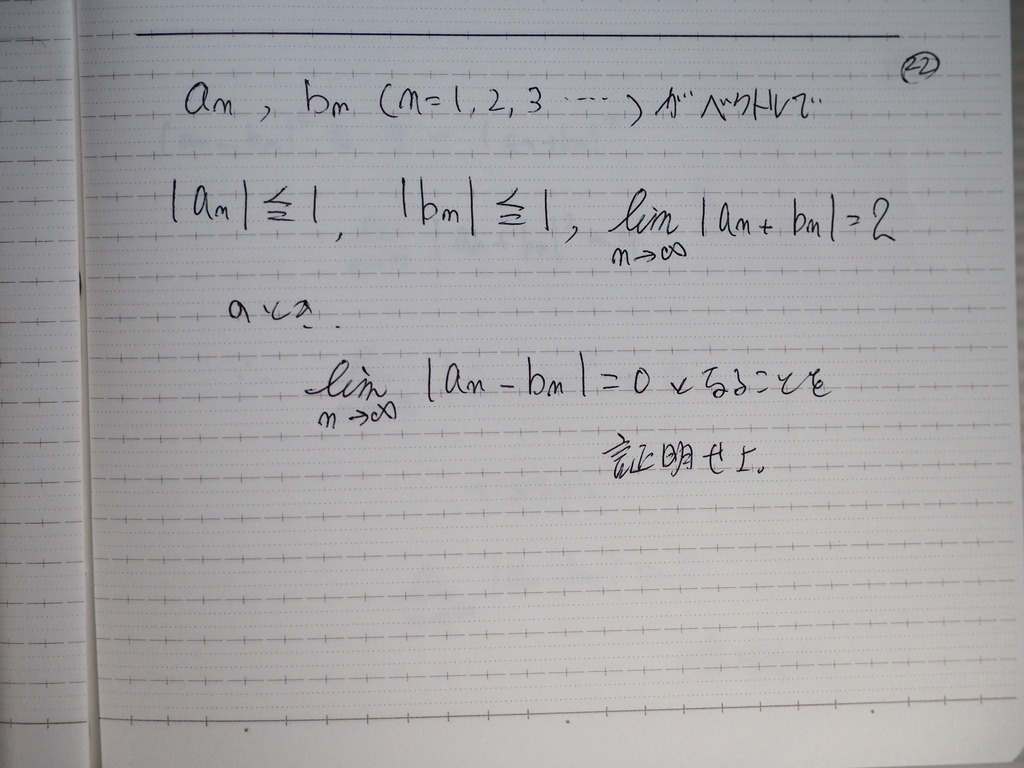 ㉒
an, bn (n=1, 2, 3 ……) がベクトルで
|an| ≦ 1, |bn| ≦ 1, lim n→∞ |an + bn| = 2
のとき.
lim n→∞ |an - bn| = 0 となることを
証明せよ。